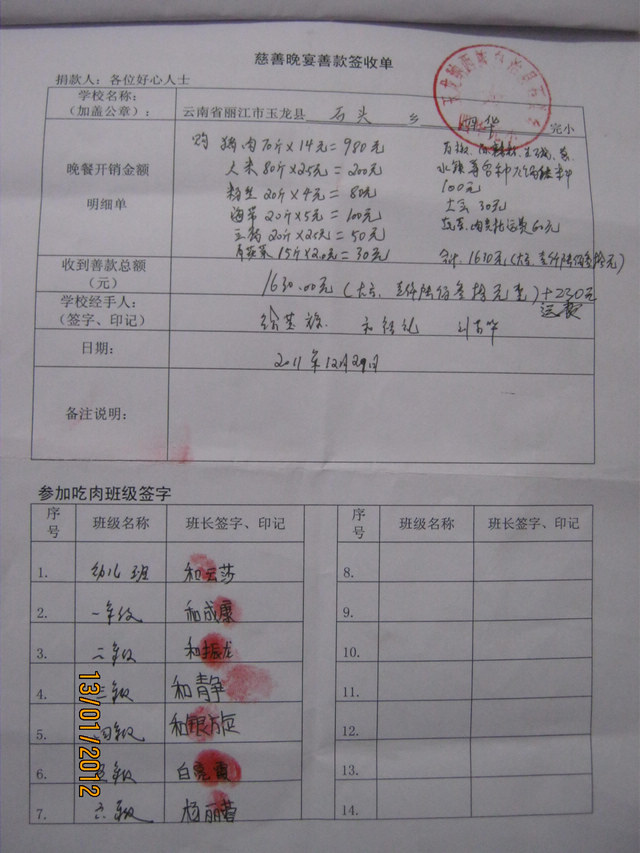 慈善晚宴善款签收单
捐款人：各位好心人士
学校名称：
（加盖公章）：
云南省丽江市玉龙县 石头 乡 四华 完小
晚餐开销金额
明细单
购 猪肉70斤×14元=980元
大米80斤×2.5元=200元
粉丝20斤×4元=80元
海带20斤×5元=100元
豆腐20斤×2.5元=50元
15斤×2.0元=30元
100元
30元
运费60元
合计：1630元（大写：壹仟陆佰叁拾元）
收到善款总额
（元）
1630.00元（大写：壹仟陆佰叁拾元整）+230元
运费
学校经手人：
（签字、印记）
日期：
2011年12月29日
备注说明：
参加吃肉班级签字
序号 班级名称 班长签字、印记 序号 班级名称 班长签字、印记
1. 幼儿班 和云莎 8.
2. 一年级 和成康 9.
3. 二年级 和振龙 10.
4. 三年级 和静 11.
5. 四年级 和银旋 12.
6. 五年级 白晓霞 13.
7. 六年级 杨丽蓉 14.
13/01/2012